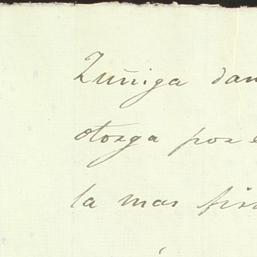 Zuñiga dan
otorga por e
la mas fir